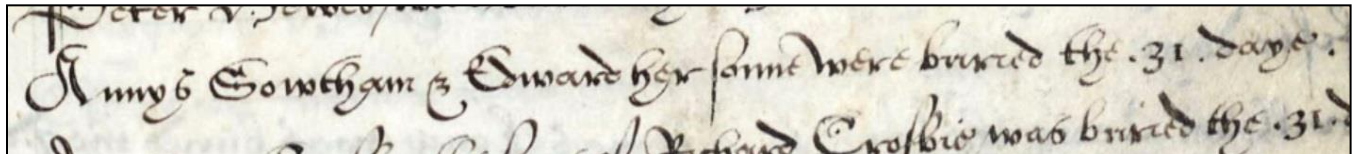 Peter
Annys Sowtham & Edward her sonne were buried the .31. daye.
Richard Crosbie was buried the .31. d